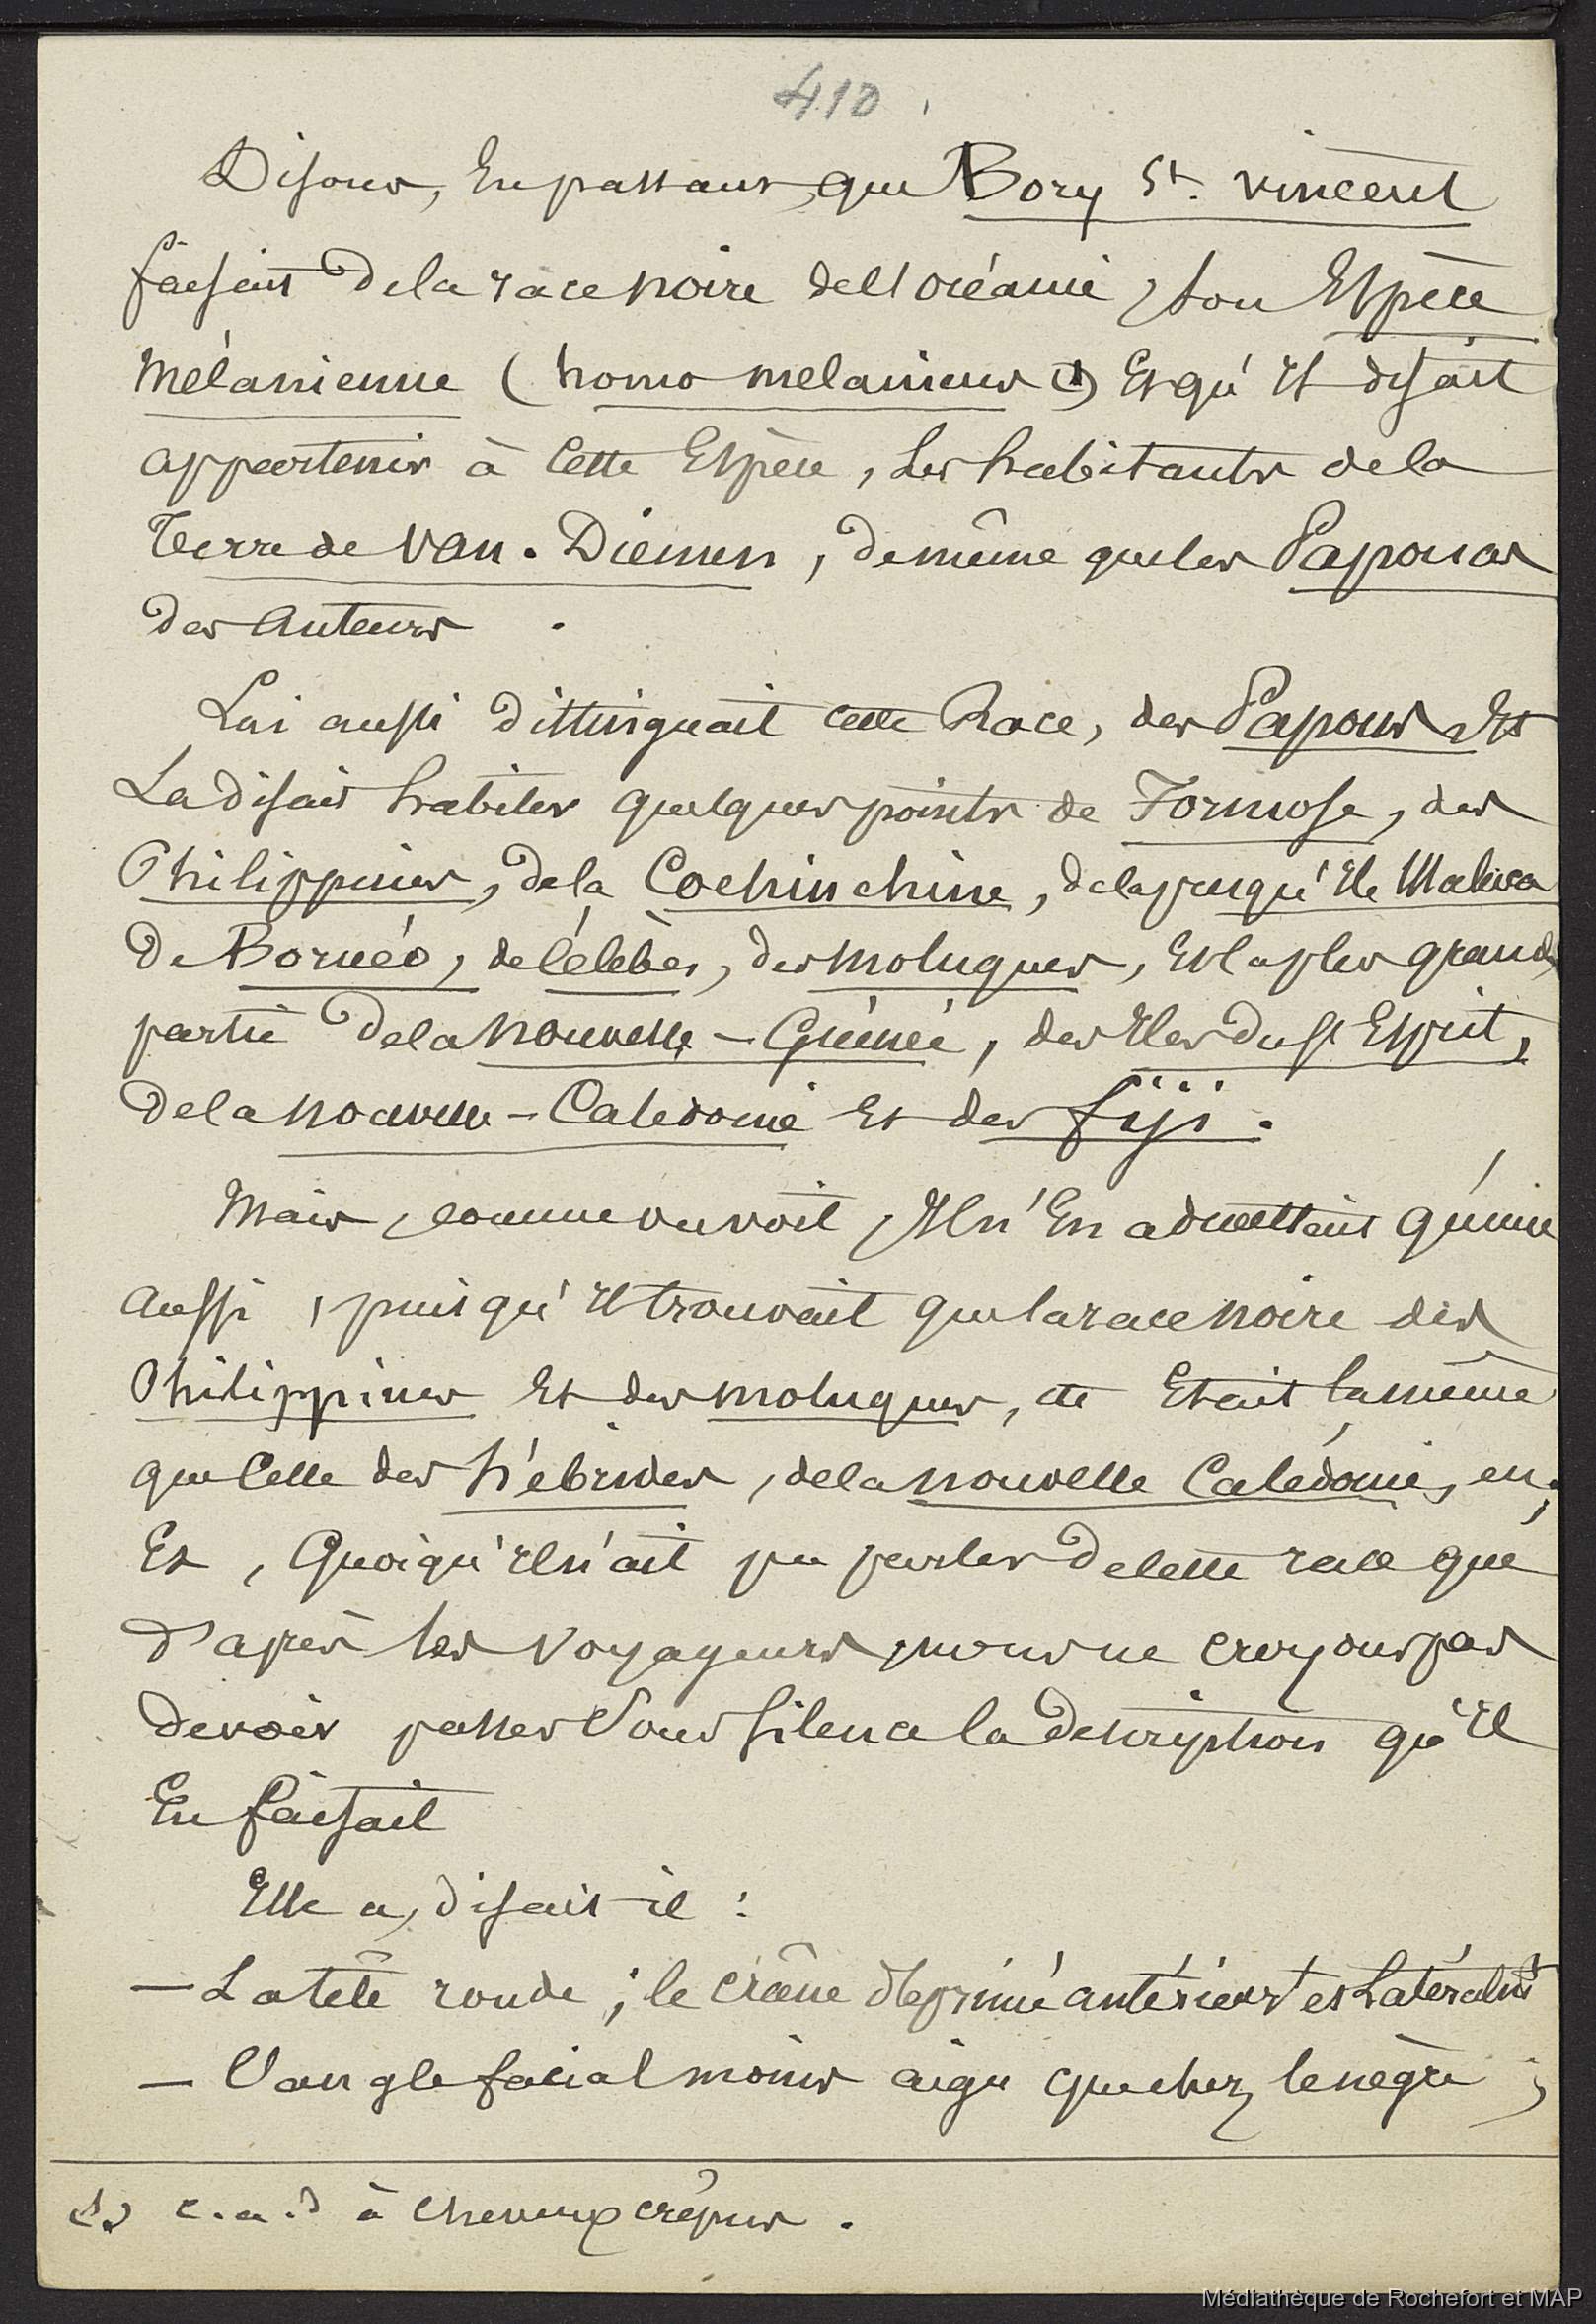 410
Disons, En passant, que Bory St. vincent
faisait de la race noire de l'océanie, son Espèce
Mélanienne (homo melaninus (1)) Et qu'Il disait
appartenir à Cette Espèce, Les habitants de la
Terre de Van. Diemen, de même que les Papouas
des Auteurs.
Lui aussi distinguait cette Race, des Papous Et
La disait habiter quelques points de Formose, des
Philippines, de la Cochinchine, de la presqu'Ile Malaca
De Bornéo, de Célèbes, des moluques, Et la plus grande
partie de la nouvelle-Guinée, des Iles du St Esprit,
de la nouvelle-Calédonie Et des fiji.
Mais, comme on voit, Il n'En admettait qu'une
aussi, puisqu'Il trouvait que la race noire des
Philippines Et des moluques, etc Etait la même
que Celle des hébrides, de la nouvelle Calédonie,
Et, Quoiqu'Il n'ait pu parler de cette race que
d'après les voyageurs, nous ne croyons pas
devoir passer Sous Silence la description qu'Il
En faisait
Elle a, disait-il :
— La tête ronde ; le crâne déprimé antérieurt et Latéralmt
— L'angle facial moins aigu que chez le nègre ;
(1) c. a. d à cheveux crépus.
Médiathèque de Rochefort et MAP